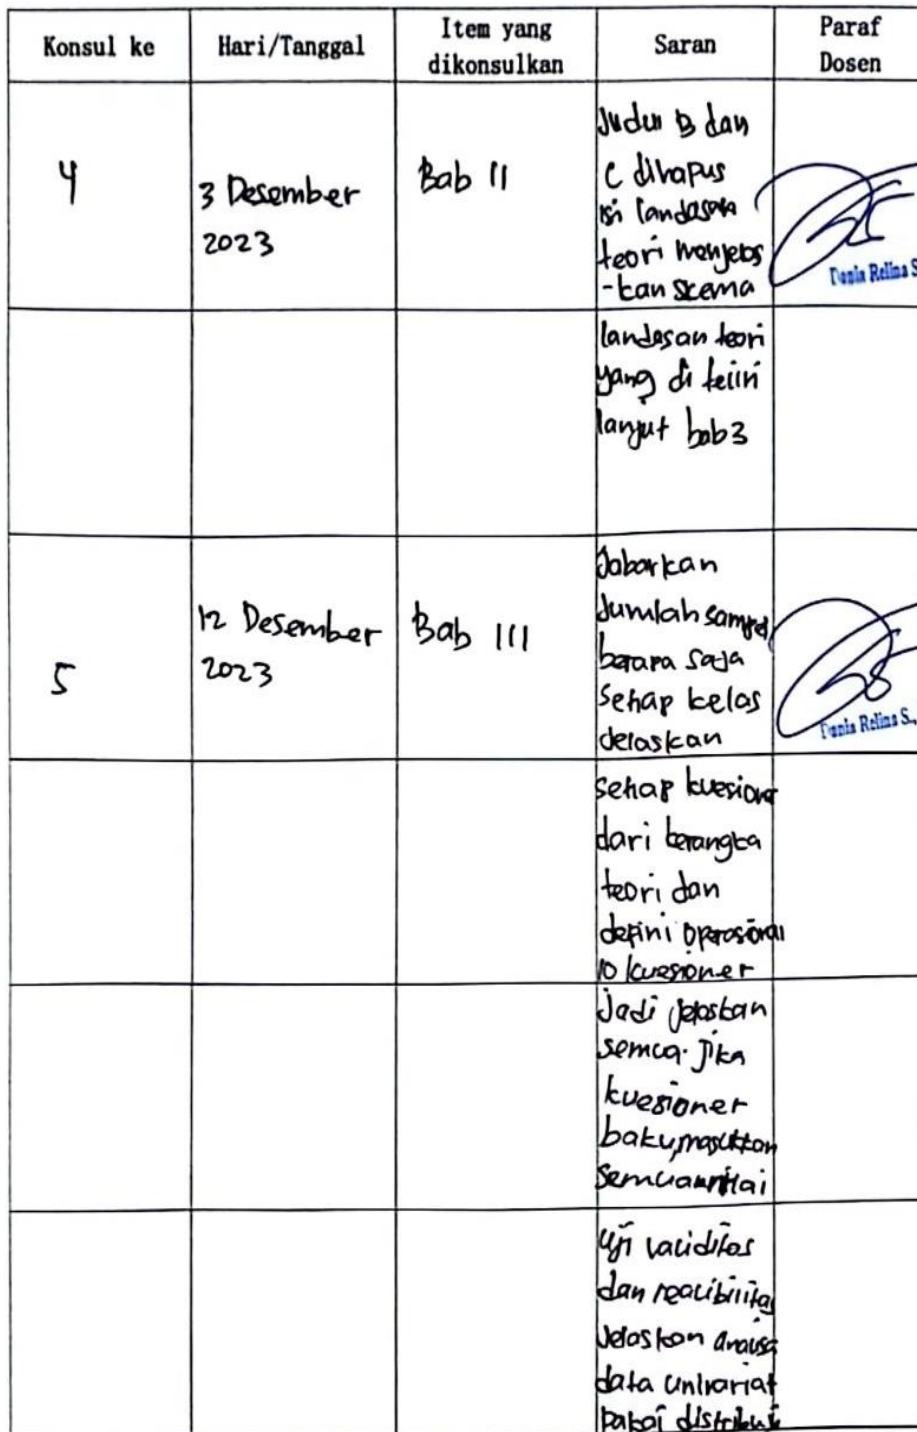 Konsul ke
Hari/Tanggal
Item yang
dikonsulkan
Saran
Paraf
Dosen
4
3 Desember
2023
Bab II
Judul B dan
C dihapus
isi landasan
teori menjelas
-kan skema
Dania Relina S
landasan teori
yang di
lanjut bab 3
5
12 Desember
2023
Bab III
Jabarkan
Jumlah sampel
berapa saja
setiap kelas
jelaskan
Dania Relina S.,
setiap kuesioner
dari kerangka
teori dan
defini operasional
10 kuesioner
Jadi jelaskan
semua. Jika
kuesioner
baku, masukkan
semua nilai
uji validitas
dan reacibilitas
Jelaskan analisa
data univariat
pakai distribusi